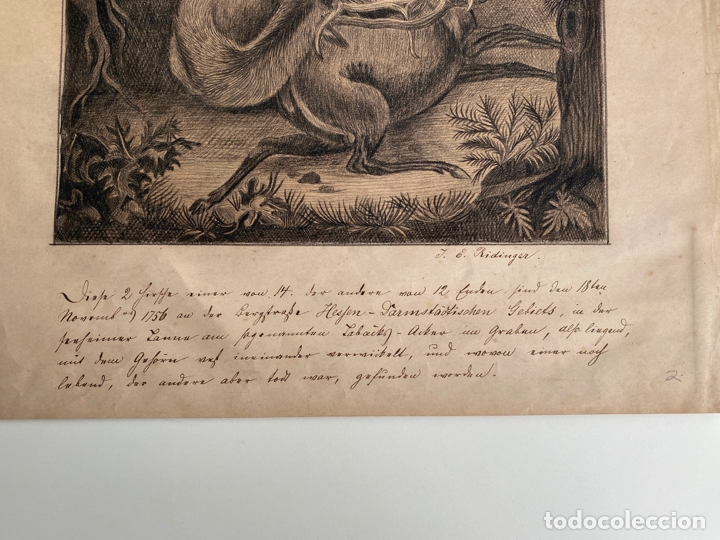 J. E. Ridinger.
Diese 2 Hirsche einer von 14. der andere von 12 Enden, sind den 18ten
Novemb. 1756 an der Bergstraße Hessen-Darmstädtischen Gebiets, in der
Seeheimer Tanne am sogenannten Tabacks-Acker im Graben, also liegend,
mit dem Gehörn vest ineinander verwickelt, und wovon einer noch
lebend, der andere aber todt war, gefunden worden.
2.
todocoleccion